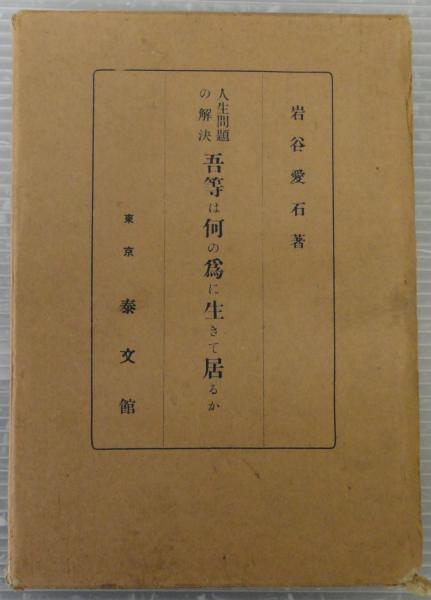 岩谷愛石著
人生問題
の解決
吾等は何の爲に生きて居るか
東京 泰文館